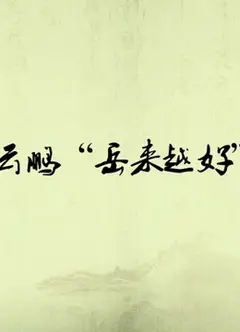 云鹏“岳来越好”